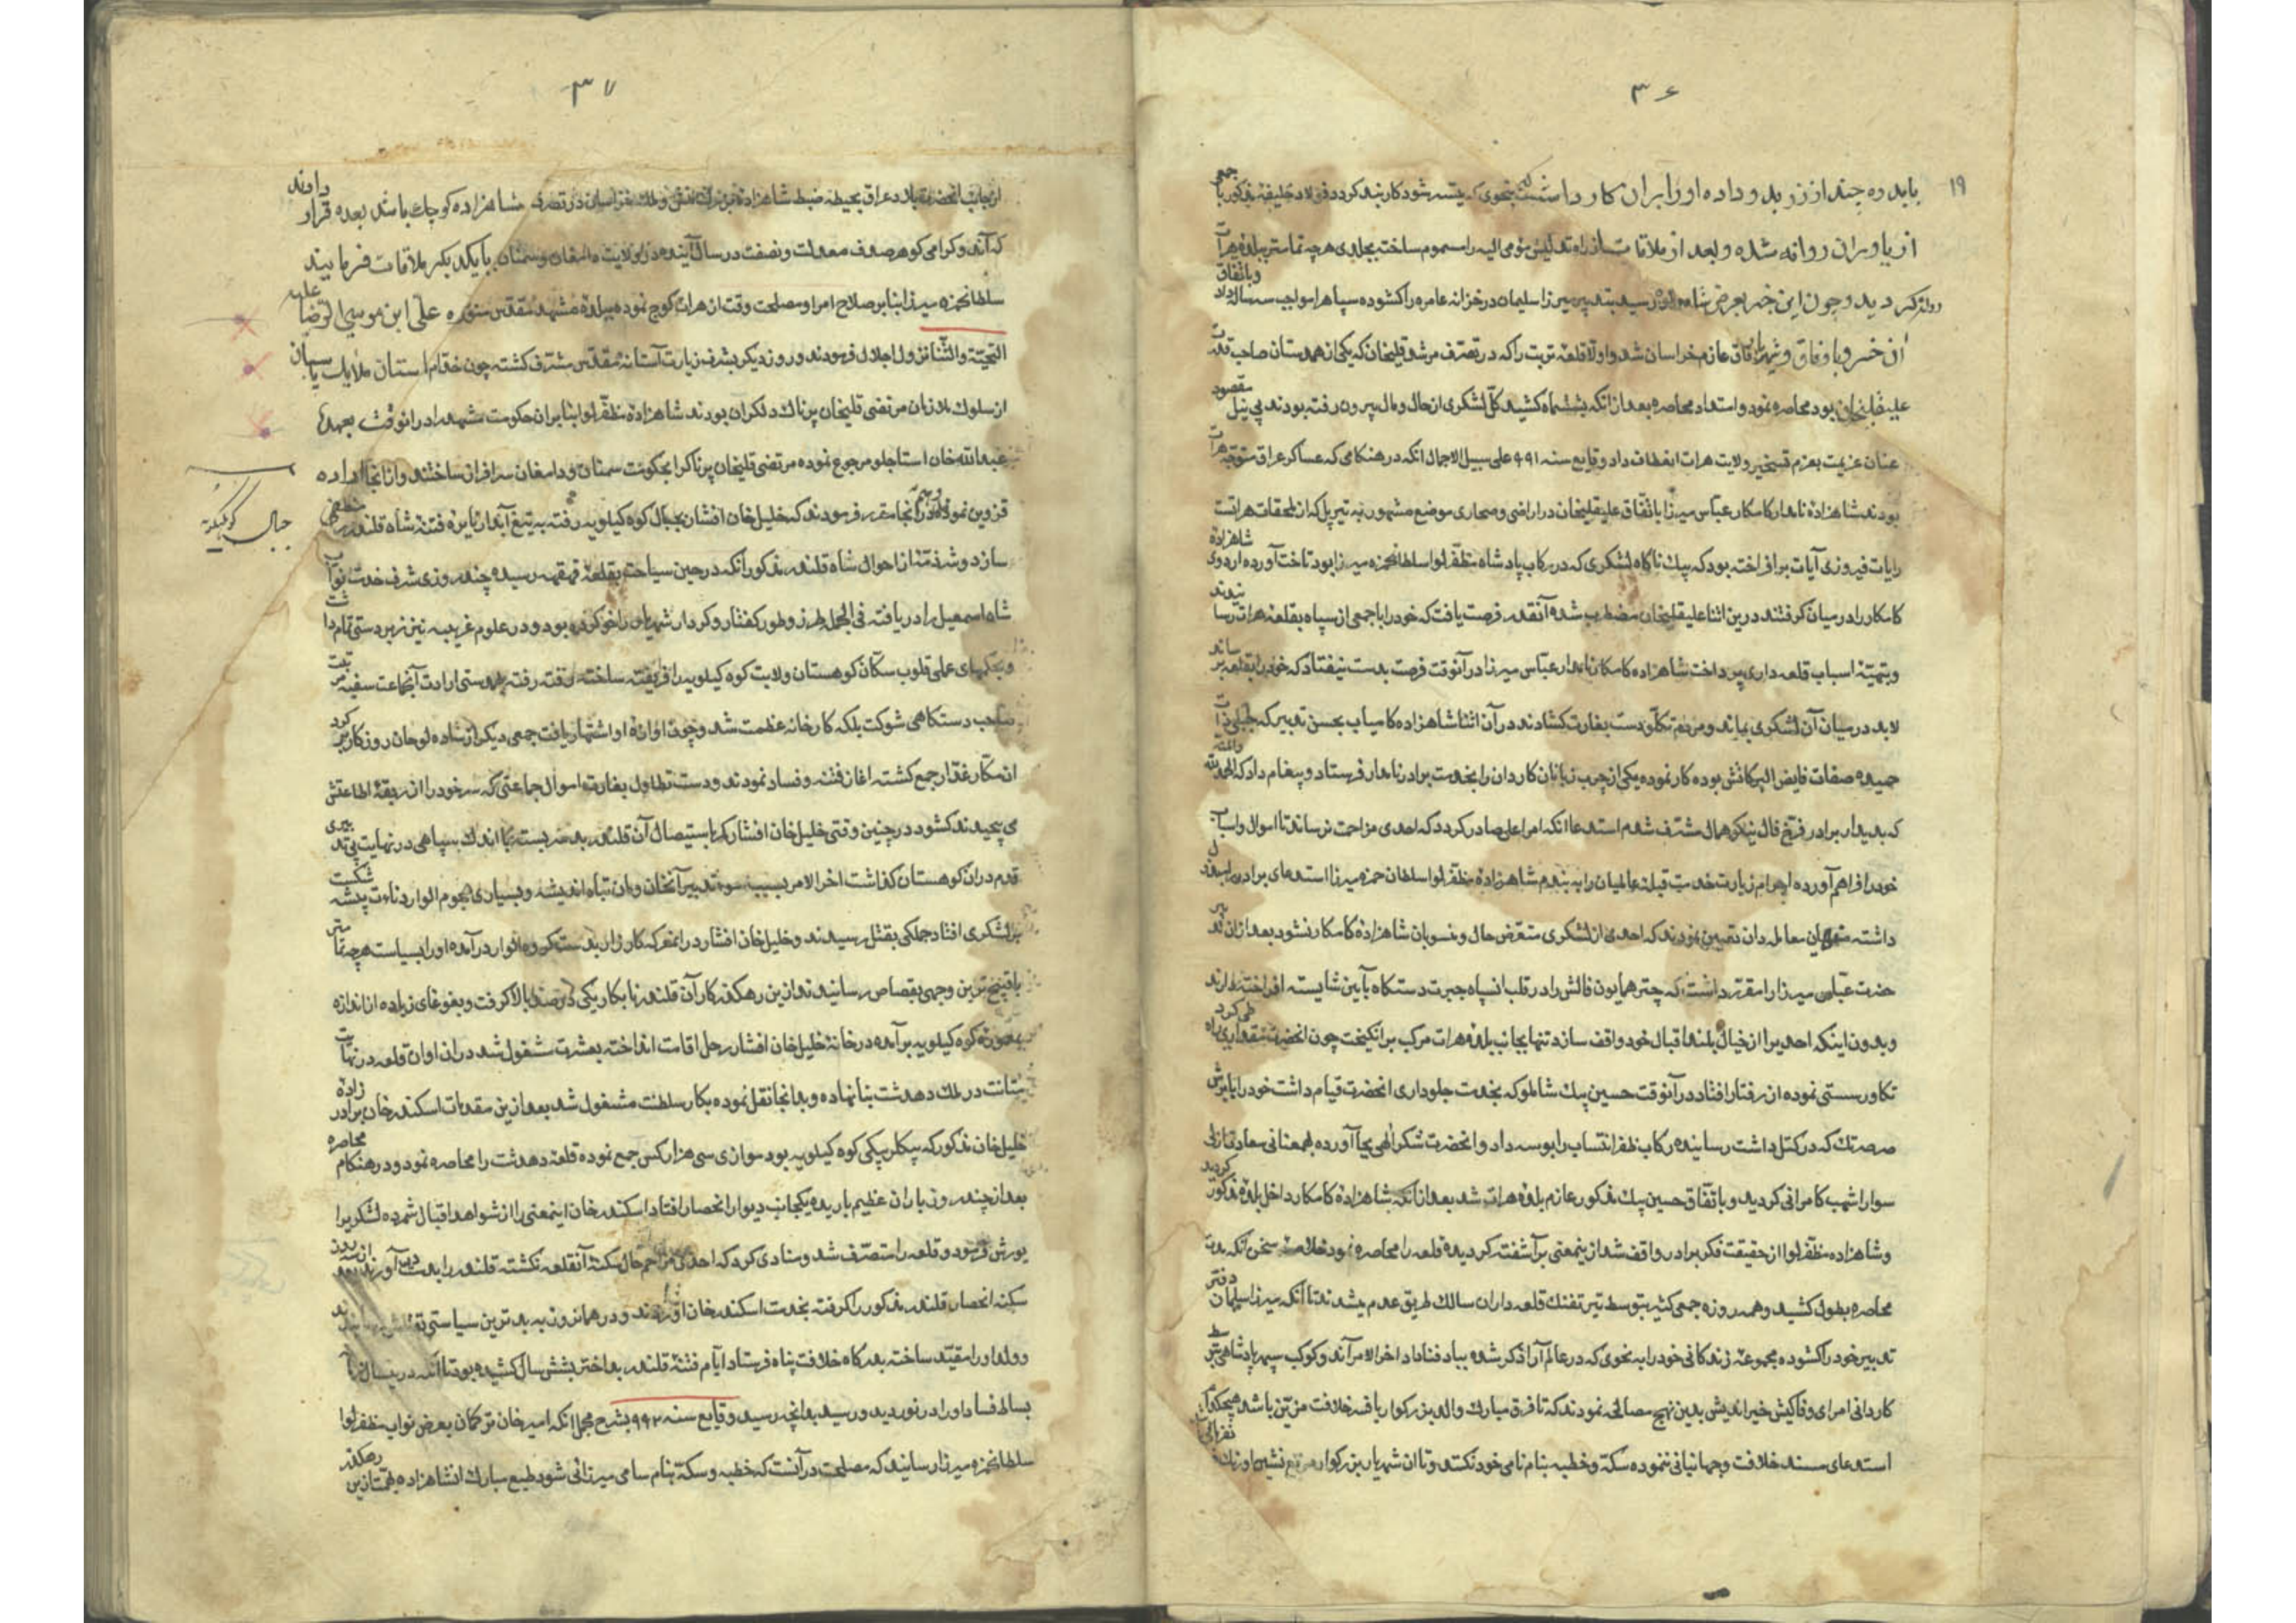 ۳۶
۱۹
باید ده چند از زر بد و داده او را بران کار داشت که بنحوی که میسر شود کاربند کردد فولاد خلیفه مذکور با جمعی
از یاوران روانه شده و بعد از ملاقات از راه تدلیس مومی الیه را مسموم ساخته بجلدی هرچه تمامتر ببلده هرات
روانه کردید و چون این خبر بعرض شاه والا رسید بتدبیر میرزا سلیمان در خزانه عامره را کشوده سپاه را مواجب سه ساله داد و باتفاق
آن خسرو با وفاق و شهریار آفاق عازم خراسان شد و اولا قلعه تربت را که در تصرف مرشد قلیخان که یکی از همدستان صاحب قدرت
علیقلیخان بود محاصره نمود و امتداد محاصره بعد از آنکه بششماه کشید کل لشکری از حال و مال بیرون رفته بودند بی نیل مقصود
عنان عزیمت بعزم تسخیر ولایت هرات انعطاف داد وقایع سنه ۹۹۱ علی سبیل الاجمال آنکه در هنکامی که عساکر عراق متوجه هرات
بودند شاهزاده نامدار کامکار عباس میرزا باتفاق علیقلیخان در اراضی و صحاری موضع مشهور به تیرپل که از ملحقات هراتست
رایات فیروزی آیات برافراخته بود که بیک ناکاه لشکری که در رکاب پادشاه مظفر لوا سلطانحمزه میرزا بود تاخت آورده اردوی شاهزاده
کامکار را در میان کرفتند درین اثنا علیقلیخان مضطرب شده آنقدر فرصت یافت که خود را با جمعی از سپاه بقلعه هرات رسانیدند
و بتهیئه اسباب قلعه داری پرداخت شاهزاده کامکار نامدار عباس میرزا در آنوقت فرصت بدست نیفتاد که خود را بقلعه رساند
لابد در میان آن لشکری بماند و مردم تکلو دست بغارت کشادند در آن اثنا شاهزاده کامیاب بحسن تدبیر که جبلی ذات
حمیده صفات فایض البرکاتش بوده کار نموده یکی از چرب زبانان کاردان را بخدمت برادر نامدار فرستاد و پیغام داد که الحمدلله والمنه
که بدیدار برادر فرخ فال نیکو همال مشرف شدم استدعا آنکه امر اعلی صادر کردد که احدی مزاحمت نرساند تا اموال و اسباب
خود را فراهم آورده احرام زیارت خدمت قبله عالمیان را به بندم شاهزاده مظفر لوا سلطان حمزه میرزا استدعای برادر را مبذول
داشته معامله دان تعیین نمودند که احدی از لشکری متعرض حال و منسوبان شاهزاده کامکار نشود بعد ازان تدبیر
حضرت عباس میرزا را مقرر داشت که چتر همایون فالش را در قلب سپاه جبرت دستکاه بآیین شایسته افراخته دارند
و بدون اینکه احدیرا از خیال بلند اقبال خود واقف سازد تنها بجانب بلده هرات مرکب برانکیخت چون انحضرت مقداری راه طی کرد
تکاور سستی نموده از رفتار افتاد در آنوقت حسین بیک شاملو که بخدمت جلوداری انحضرت قیام داشت خود را با برش
صرصرتک که در کتل داشت رسانیده رکاب ظفر انتساب را بوسه داد و انحضرت شکر الهی بجا آورده بهمعنانی سعادت ازلی
سوار اشهب کامرانی کردید و باتفاق حسین بیک مذکور عازم بلده هرات شد بعد از آنکه شاهزاده کامکار داخل بلده مذکور کردید
و شاهزاده مظفر لوا از حقیقت فکر برادر واقف شد از ینمعنی برآشفته کردیده قلعه را محاصره نمود خلاصه سخن آنکه مدت
محاصره بطول کشید و همه روزه جمعی کثیر بتوسط تیر تفنک قلعه داران سالک طریق عدم میشدند تا آنکه میرزا سلیمان دفتر
تدبیر خود را کشوده مجموعه زندکانی خود را به نحوی که در عالم آرا ذکر شده بباد فنا داد اخر الامر آندو کوکب سپهر پادشاهی بتوسط
کاردانی امرای وفاکیش خیر اندیش بدین نهج مصالحه نمودند که تا فرق مبارک والد بزرکوار بافسر خلافت مزین باشد هیچکدام
استدعای مسند خلافت و جهانبانی ننموده سکه و خطبه بنام نامی خود نکنند و تا ان شهریار بزرکوار نشین اورنک
۳۷
از جانب انحضرت بلاد عراق بحیطه ضبط شاهزاده بزرک و ملک خراسان در تصرف شاهزاده کوچک باشد بعده قرار دادند
که آندو کرامی کوهر صدف معدلت و نصفت در سال آینده در ولایت دامغان و سمنان بایکدیکر ملاقات فرمایند
سلطانحمزه میرزا بنابر صلاح امرا و مصلحت وقت از هرات کوچ نموده ببلده مشهد مقدس منوره علی ابن موسی الرضا علیه
التحیة والثنا نزول اجلال فرمودند و روز دیکر بشرف زیارت آستانه مقدس مشرف کشته چون خدام استان ملایک پاسبان
از سلوک ملازمان مرتضی قلیخان پرناک دلکران بودند شاهزاده مظفر لوا بنابران حکومت مشهد را در انوقت بعهده
عبدالله خان استاجلو مرجوع نموده مرتضی قلیخان پرناک را بحکومت سمنان و دامغان سرافراز ساختند و از انجا اراده
قزوین نموده و هم در آنجا مقرر فرمودند که خلیل خان افشار بجبال کوه کیلویه رفته به تیغ آبدار نایره فتنه شاه قلندر را منطفی
جبال کوه کیلویه
سازد و شرذمه از احوال شاه قلندر مذکور آنکه در حین سیاحت بقلعه قهقهه رسیده چند روزی شرف خدمت نواب
شاه اسمعیل را دریافته فی الجمله طرز و طور کفتار و کردار شهریار را خو کرده بود و در علوم غریبه نیز زبردستی تمام داشت
و بحکمهای عملی قلوب سکان کوهستان ولایت کوه کیلویه را فریفته ساخته رفته رفته بدستی ارادت آنجماعت سفیه مرتبت
صاحب دستکاهی شوکت بلکه کارخانه عظمت شد و چون اوازه او اشتهار یافت جمعی دیکر از ساده لوحان روزکار بر کرد
ان مکار غدار جمع کشته اغاز فتنه و فساد نمودند و دست تطاول بغارت اموال جماعتی که سر خود را از ربقه اطاعتش
می پیچیدند کشود در چنین وقتی خلیل خان افشار کمر باستیصال آن قلندر بدسر بسته با اندک سپاهی در نهایت بی تدبیری
قدم دران کوهستان کذاشت اخر الامر بسبب سوء تدبیر آنخان و ان تباه اندیشه و بسیاری هجوم الوار دناءت پیشه شکست
بر لشکری افتاد جملکی بقتل رسیدند و خلیل خان افشار در انمعرکه کارزار بدست کروه الوار درآمده او را بسیاست هرچه تمامتر
باقبح ترین وجهی بقصاص رسانیدند ازین رهکذر کار آن قلندر نابکار یکی در صد بالا کرفت و بغوغای زیاده از اندازه
بمعموره کوه کیلویه برآمده در خانه خلیل خان افشار رحل اقامت انداخته بعشرت مشغول شد دران اوان قلعه در نهایت
متانت در ملک دهدشت بنا نهاده و بدانجا نقل نموده بکار سلطنت مشغول شد بعد ازین مقدمات اسکندر خان برادر زاده
خلیل خان مذکور که بیکلربیکی کوه کیلویه بود موازی سی هزار کس جمع نموده قلعه دهدشت را محاصره نمود و در هنکام محاصره
بعد از چند روز باران عظیم باریده یکجانب دیوار انحصار افتاد اسکندر خان اینمعنی را از شواهد اقبال شمرده لشکریرا
یورش فرمود و قلعه را متصرف شد و منادی کرد که احدی مزاحم حال سکنه آنقلعه نکشته قلندر را بدست آورند
سکنه انحصار قلندر مذکور را کرفته بخدمت اسکندر خان آوردند و در همانروز به بدترین سیاستی
و ولد او را مقید ساخته بدرکاه خلافت پناه فرستاد ایام فتنه قلندر بداختر بشش سال کشیده بود تا آنکه درینسال
بساط فساد او را در نوردید و رسید بدانچه رسید وقایع سنه ۹۹۲ بشرح مجمل آنکه امیر خان ترکمان بعرض نواب مظفر لوا
سلطانحمزه میرزا رسانید که مصلحت در آنست که خطبه و سکه بنام سامی میرزائی شود طبع مبارک انشاهزاده ازین رهکذر